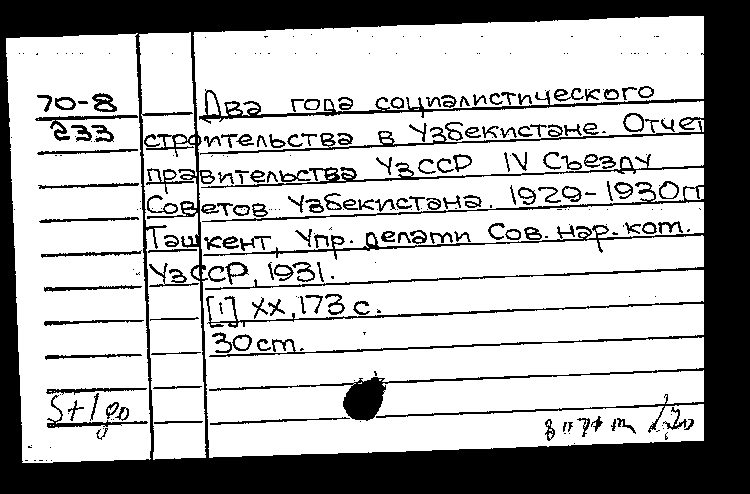 70-8 Два года социалистического
233 строительства в Узбекистане. Отчет
правительства УзССР IV Съезду
Советов Узбекистана. 1929-1930гг
Ташкент, Упр. делати Сов. нар. кот.
УзССР, 1931.
[1], XX, 173 с.
30cm.